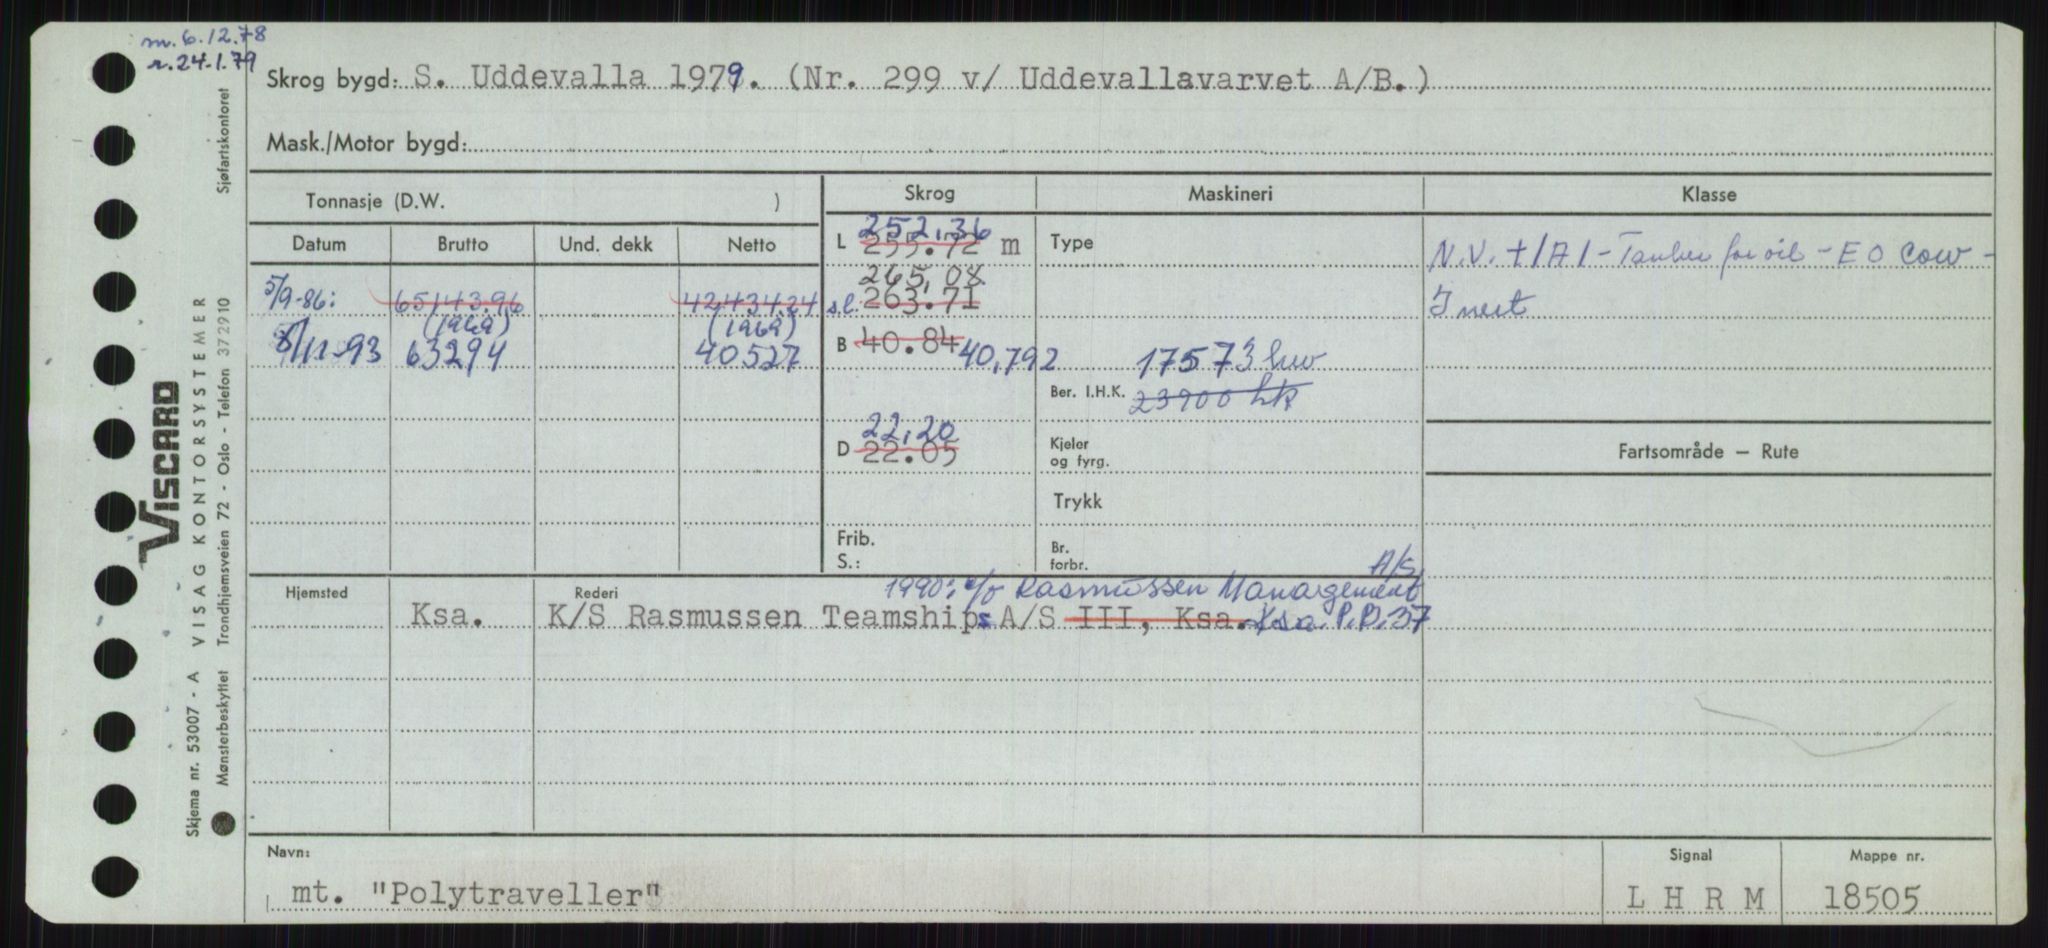 m. 6.12.78
r. 24.1.79
Skrog bygd: S. Uddevalla 1979. (Nr. 299 v/ Uddevallavarvet A/B.)
Mask./Motor bygd:
Tonnasje (D.W. )
Skrog
Maskineri
Klasse
Datum
Brutto
Und. dekk
Netto
5/9-86: 65143.96 42434.24
(1969) (1969)
8/11-93 63294 40527
L 252,36
255.72 m
265,08
s.l. 263.71
B 40.84 40,792
D 22,20
22.05
Frib.
S.:
Type
17573 hw
Ber. I.H.K. 23900 hk
Kjeler
og fyrg.
Trykk
Br.
forbr.
N.V. +1A1 - Tanker for oil - EO COW -
Inert
Fartsområde — Rute
Hjemsted
Rederi
1990: c/o Rasmussen Management A/S
Ksa. K/S Rasmussen Teamships A/S III, Ksa. Ksa. P.B. 37
Navn:
mt. "Polytraveller"
Signal
L H R M
Mappe nr.
18505
VISCARD
VISAG KONTORSYSTEMER
Skjema nr. 53007 - A
Mønsterbeskyttet
Trondhjemsveien 72 - Oslo - Telefon 372910
Sjøfartskontoret